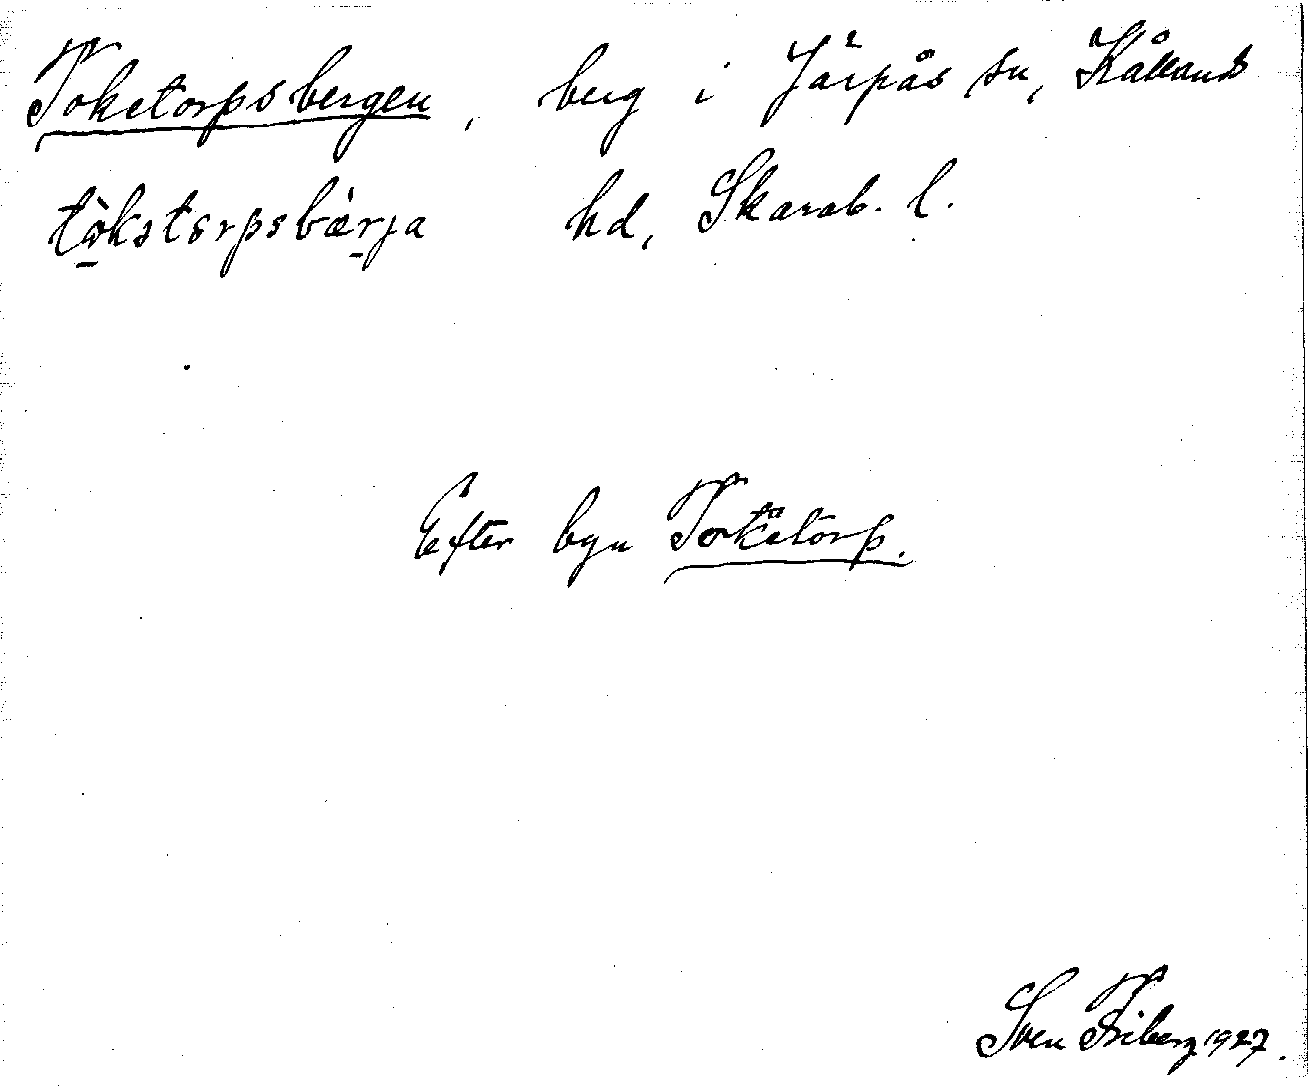 Toketorpsbergen, berg i Järpås sn, Kållands
tòkstorpsbærja hd, Skarab. l.
Efter byn Toketorp.
Sven Friberg 1927.